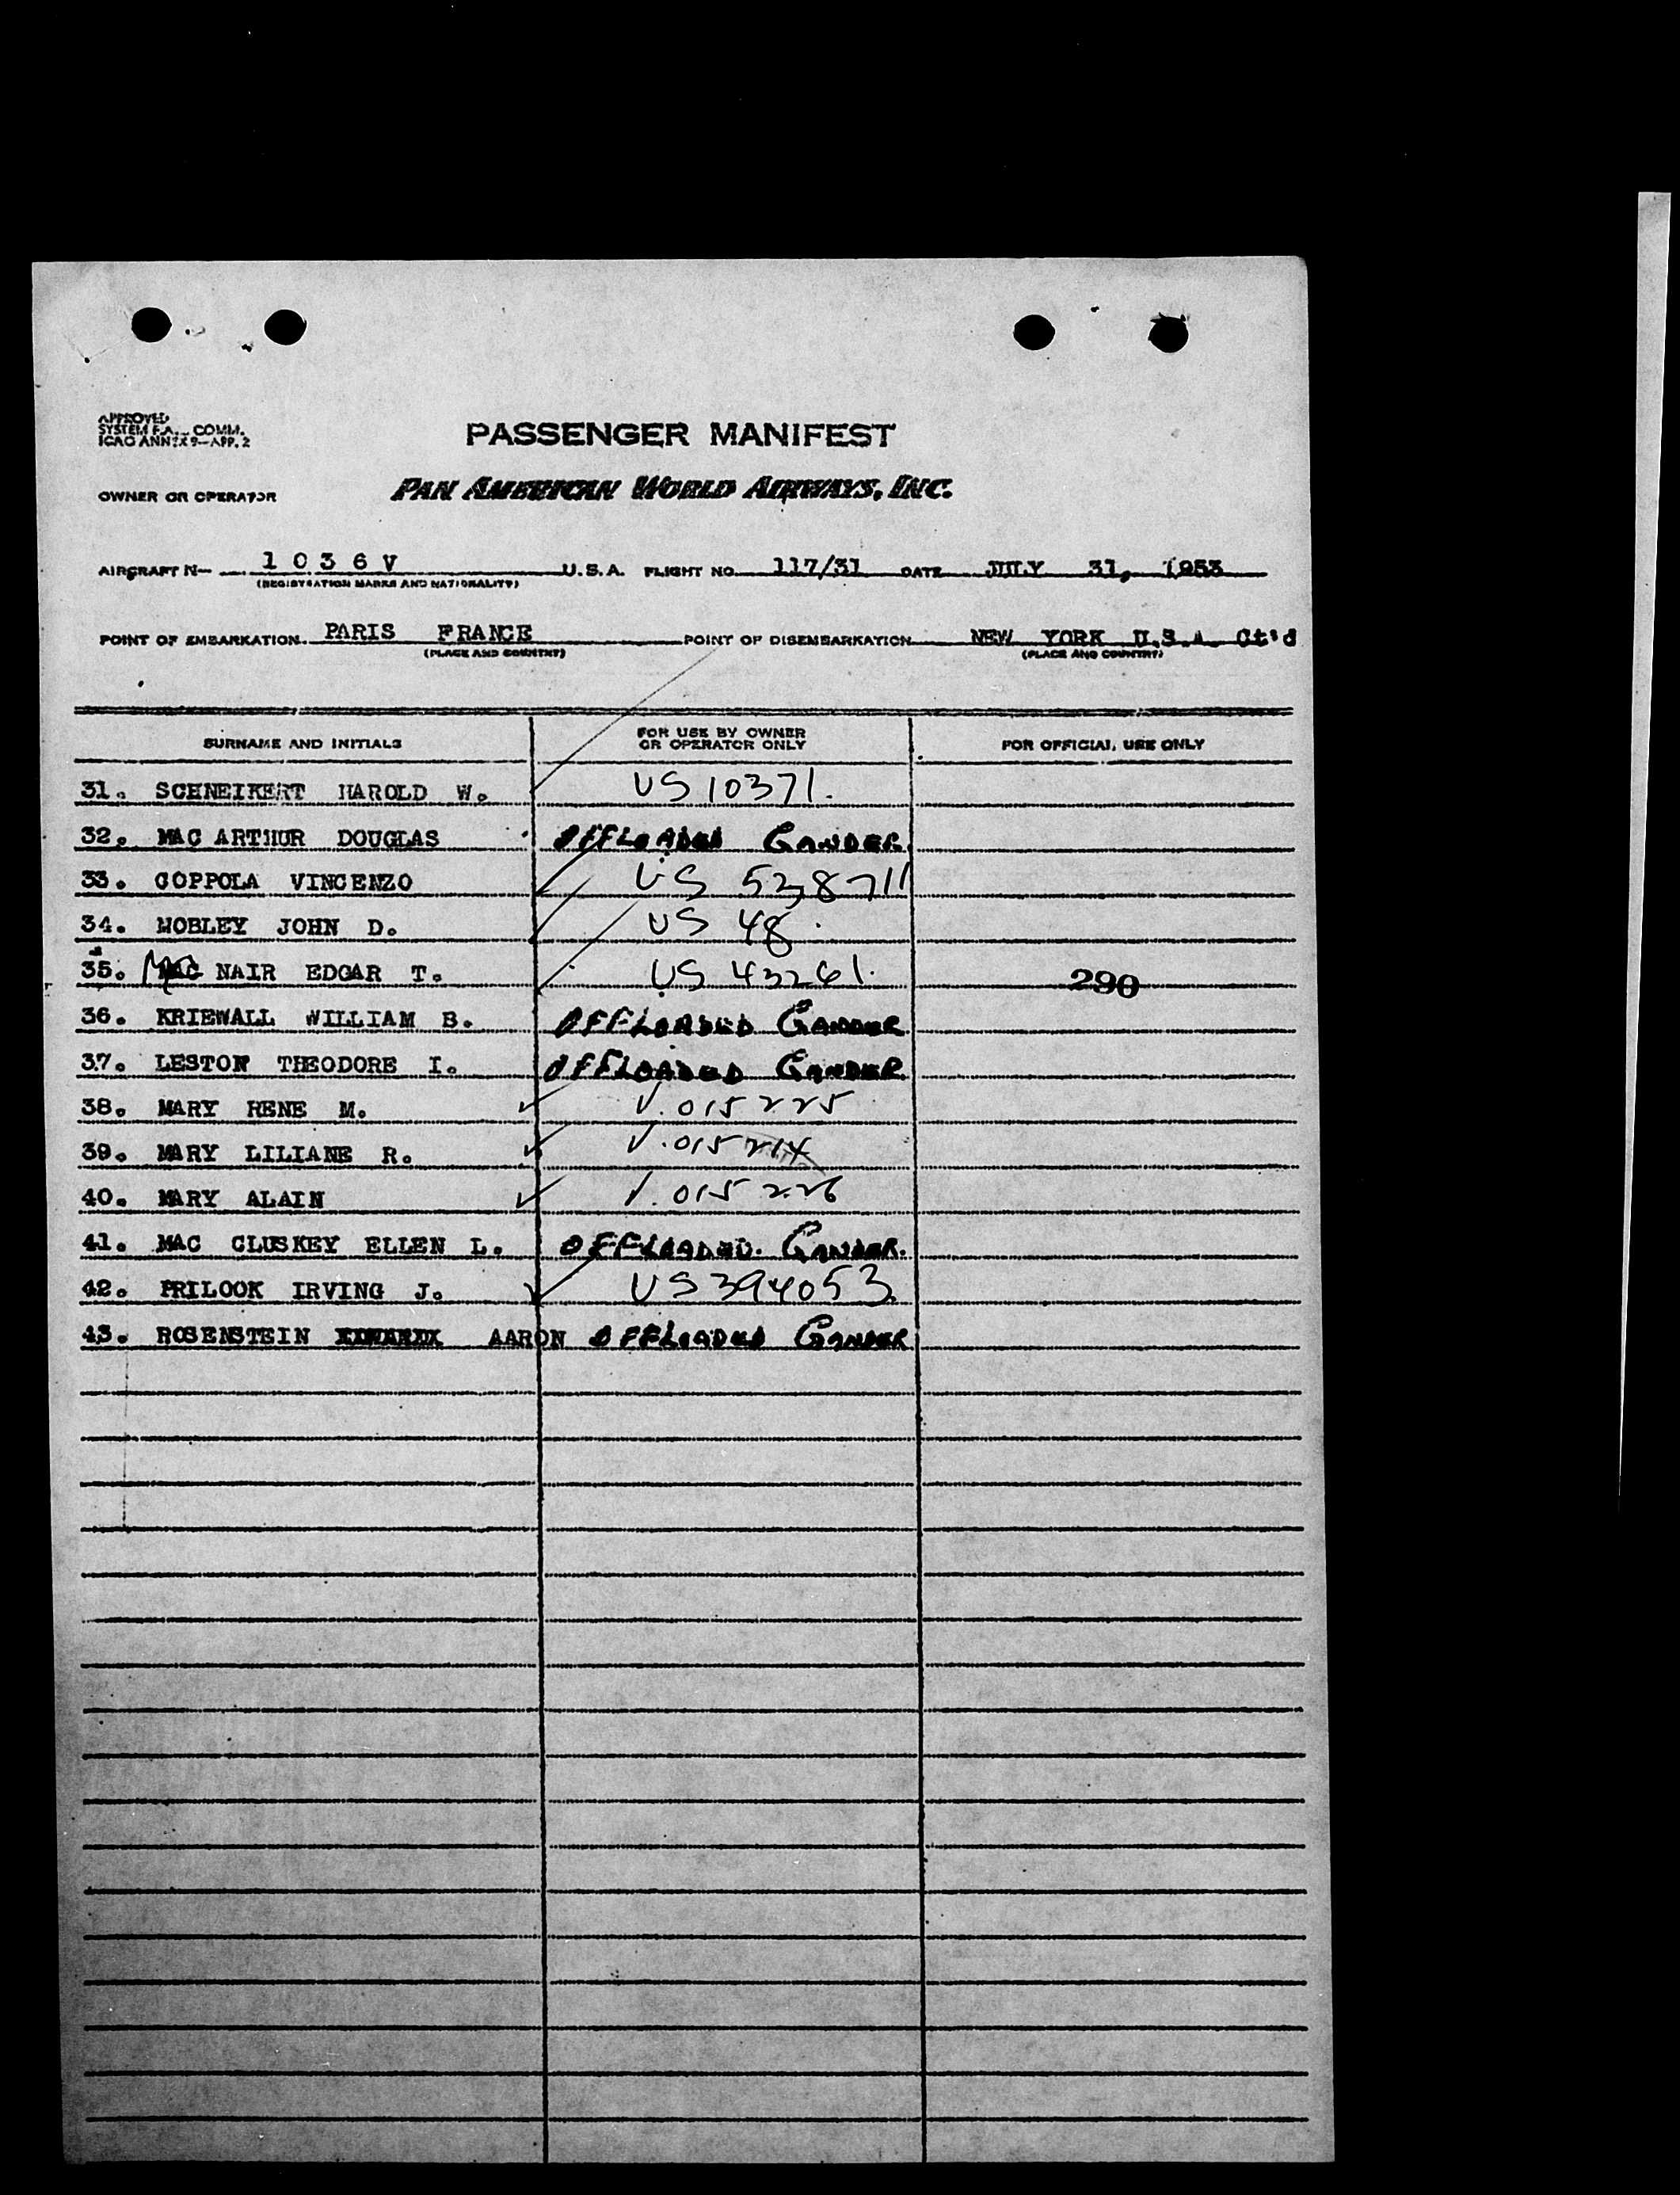 APPROVED
SYSTEM F.A. COMM.
ICAO ANNEX 9-APP. 2
PASSENGER MANIFEST
OWNER OR OPERATOR PAN AMERICAN WORLD AIRWAYS, INC.
AIRCRAFT N- 1 0 3 6 V U.S.A. FLIGHT NO. 117/31 DATE JULY 31, 1953
(REGISTRATION MARKS AND NATIONALITY)
POINT OF EMBARKATION PARIS FRANCE POINT OF DISEMBARKATION NEW YORK U.S.A. Ct'd
(PLACE AND COUNTRY) (PLACE AND COUNTRY)
SURNAME AND INITIALS FOR USE BY OWNER OR OPERATOR ONLY FOR OFFICIAL USE ONLY
31. SCHNEIKERT HAROLD W. US 10371.
32. MAC ARTHUR DOUGLAS OFFLOADED GANDER.
33. COPPOLA VINCENZO US 538711
34. MOBLEY JOHN D. US 48.
35. Mc NAIR EDGAR T. US 43261. 290
36. KRIEWALL WILLIAM B. OFFLOADED GANDER
37. LESTON THEODORE I. OFFLOADED GANDER
38. MARY RENE M. V. 015225
39. MARY LILIANE R. V. 015214
40. MARY ALAIN V. 015226
41. MAC CLUSKEY ELLEN L. OFFLOADED. GANDER.
42. PRILOOK IRVING J. US 394053.
43. ROSENSTEIN AARON OFFLOADED GANDER